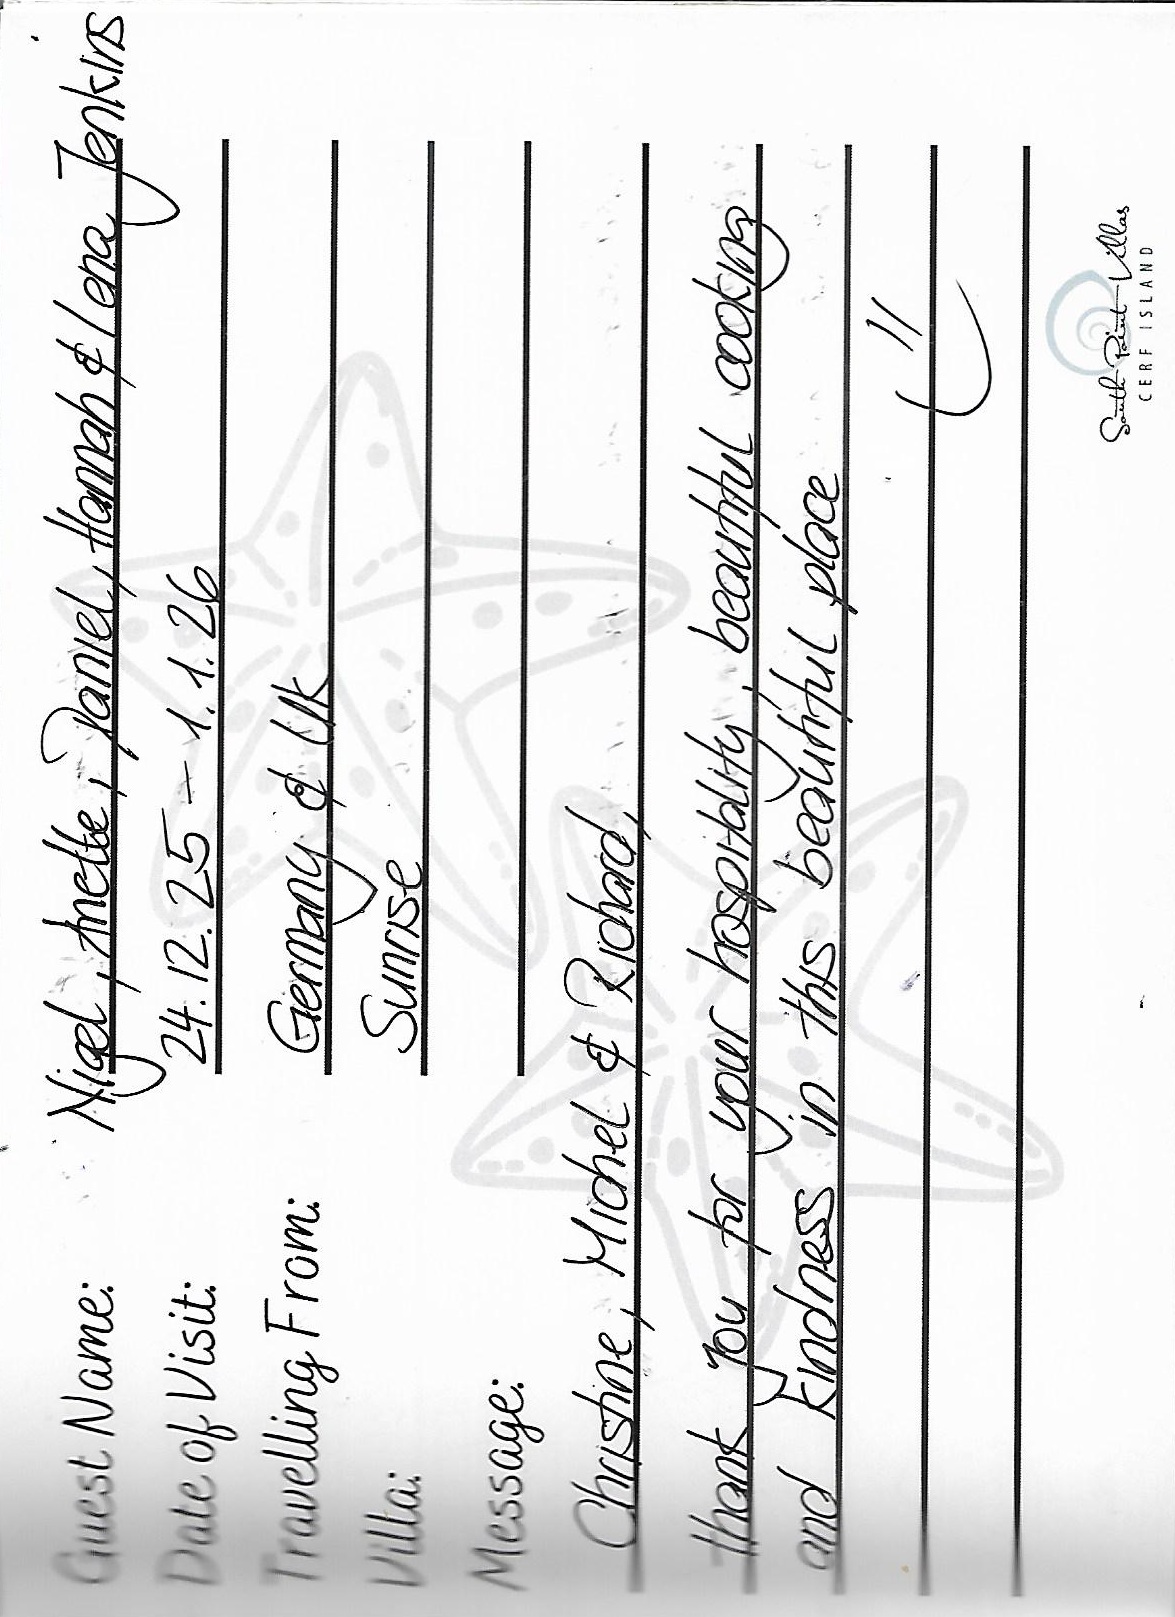 Guest Name: Nigel, Anette, Daniel, Hannah & Lena Jenkins
Date of Visit: 24.12.25 – 1.1.26
Travelling From: Germany & UK
Villa: Sunrise
Message:
Christine, Michel & Richard,
thank you for your hospitality, beautiful cooking
and kindness in this beautiful place
South Point Villas
CERF ISLAND